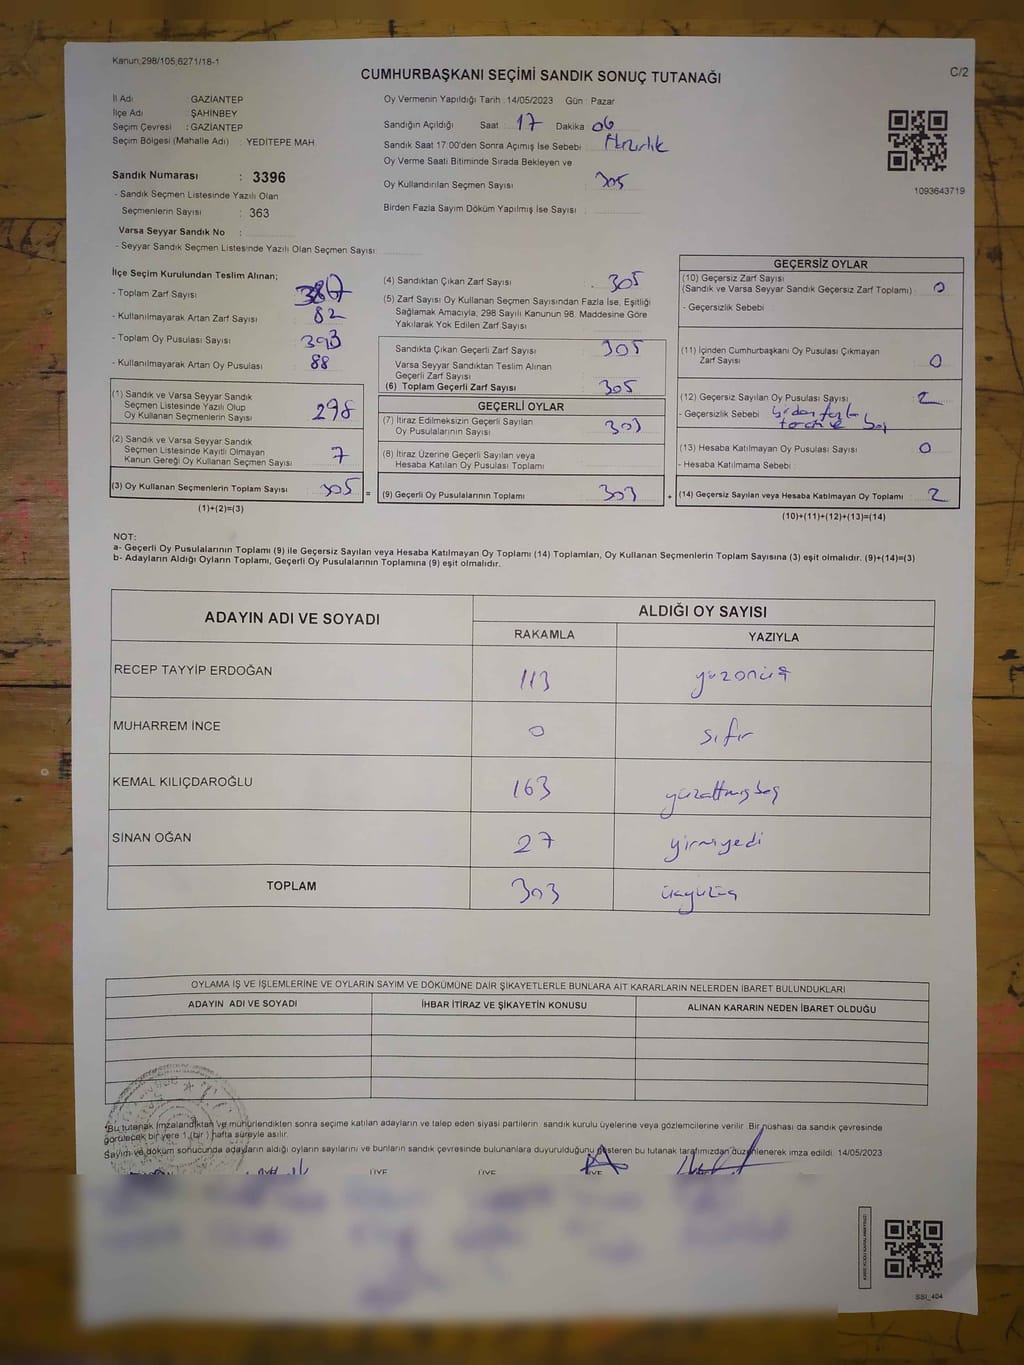 Kanun;298/105;6271/18-1
CUMHURBAŞKANI SEÇİMİ SANDIK SONUÇ TUTANAĞI
C/2
İl Adı GAZİANTEP
İlçe Adı ŞAHİNBEY
Seçim Çevresi : GAZİANTEP
Seçim Bölgesi (Mahalle Adı) : YEDİTEPE MAH.
Sandık Numarası : 3396
- Sandık Seçmen Listesinde Yazılı Olan
Seçmenlerin Sayısı : 363
Varsa Seyyar Sandık No :
- Seyyar Sandık Seçmen Listesinde Yazılı Olan Seçmen Sayısı:
Oy Vermenin Yapıldığı Tarih : 14/05/2023 Gün : Pazar
Sandığın Açıldığı Saat : 17 Dakika 06
Sandık Saat 17:00'den Sonra Açımış İse Sebebi : Hazırlık
Oy Verme Saati Bitiminde Sırada Bekleyen ve
Oy Kullandırılan Seçmen Sayısı : 305
Birden Fazla Sayım Döküm Yapılmış İse Sayısı :
1093643719
İlçe Seçim Kurulundan Teslim Alınan;
- Toplam Zarf Sayısı
- Kullanılmayarak Artan Zarf Sayısı : 82
- Toplam Oy Pusulası Sayısı : 393
- Kullanılmayarak Artan Oy Pusulası : 88
(1) Sandık ve Varsa Seyyar Sandık
Seçmen Listesinde Yazılı Olup
Oy Kullanan Seçmenlerin Sayısı 298
(2) Sandık ve Varsa Seyyar Sandık
Seçmen Listesinde Kayıtlı Olmayan
Kanun Gereği Oy Kullanan Seçmen Sayısı 7
(3) Oy Kullanan Seçmenlerin Toplam Sayısı 305 =
(1)+(2)=(3)
(4) Sandıktan Çıkan Zarf Sayısı : 305
(5) Zarf Sayısı Oy Kullanan Seçmen Sayısından Fazla İse, Eşitliği
Sağlamak Amacıyla, 298 Sayılı Kanunun 98. Maddesine Göre
Yakılarak Yok Edilen Zarf Sayısı
Sandıkta Çıkan Geçerli Zarf Sayısı 305
Varsa Seyyar Sandıktan Teslim Alınan
Geçerli Zarf Sayısı
(6) Toplam Geçerli Zarf Sayısı 305
GEÇERLİ OYLAR
(7) İtiraz Edilmeksizin Geçerli Sayılan
Oy Pusulalarının Sayısı 303
(8) İtiraz Üzerine Geçerli Sayılan veya
Hesaba Katılan Oy Pusulası Toplamı
(9) Geçerli Oy Pusulalarının Toplamı 303 +
GEÇERSİZ OYLAR
(10) Geçersiz Zarf Sayısı
(Sandık ve Varsa Seyyar Sandık Geçersiz Zarf Toplamı) : 0
- Geçersizlik Sebebi
(11) İçinden Cumhurbaşkanı Oy Pusulası Çıkmayan
Zarf Sayısı 0
(12) Geçersiz Sayılan Oy Pusulası Sayısı 2
- Geçersizlik Sebebi birden fazla
tercih ve boş
(13) Hesaba Katılmayan Oy Pusulası Sayısı 0
- Hesaba Katılmama Sebebi
(14) Geçersiz Sayılan veya Hesaba Katılmayan Oy Toplamı 2
(10)+(11)+(12)+(13)=(14)
NOT:
a- Geçerli Oy Pusulalarının Toplamı (9) ile Geçersiz Sayılan veya Hesaba Katılmayan Oy Toplamı (14) Toplamları, Oy Kullanan Seçmenlerin Toplam Sayısına (3) eşit olmalıdır. (9)+(14)=(3)
b- Adayların Aldığı Oyların Toplamı, Geçerli Oy Pusulalarının Toplamına (9) eşit olmalıdır.
ADAYIN ADI VE SOYADI
ALDIĞI OY SAYISI
RAKAMLA YAZIYLA
RECEP TAYYİP ERDOĞAN 113 yüzonüç
MUHARREM İNCE 0 sıfır
KEMAL KILIÇDAROĞLU 163
SİNAN OĞAN 27 yirmiyedi
TOPLAM 303 üçyüzüç
OYLAMA İŞ VE İŞLEMLERİNE VE OYLARIN SAYIM VE DÖKÜMÜNE DAİR ŞİKAYETLERLE BUNLARA AİT KARARLARIN NELERDEN İBARET BULUNDUKLARI
ADAYIN ADI VE SOYADI İHBAR İTİRAZ VE ŞİKAYETİN KONUSU ALINAN KARARIN NEDEN İBARET OLDUĞU
*Bu tutanak imzalandıktan ve mühürlendikten sonra seçime katılan adayların ve talep eden siyasi partilerin sandık kurulu üyelerine veya gözlemcilerine verilir. Bir nüshası da sandık çevresinde
görülecek bir yere 1 (bir) hafta süreyle asılır.
Sayım ve döküm sonucunda adayların aldığı oyların sayılarını ve bunların sandık çevresinde bulunanlara duyurulduğunu gösteren bu tutanak tarafımızdan düzenlenerek imza edildi. 14/05/2023
ÜYE ÜYE ÜYE
SSİ_404